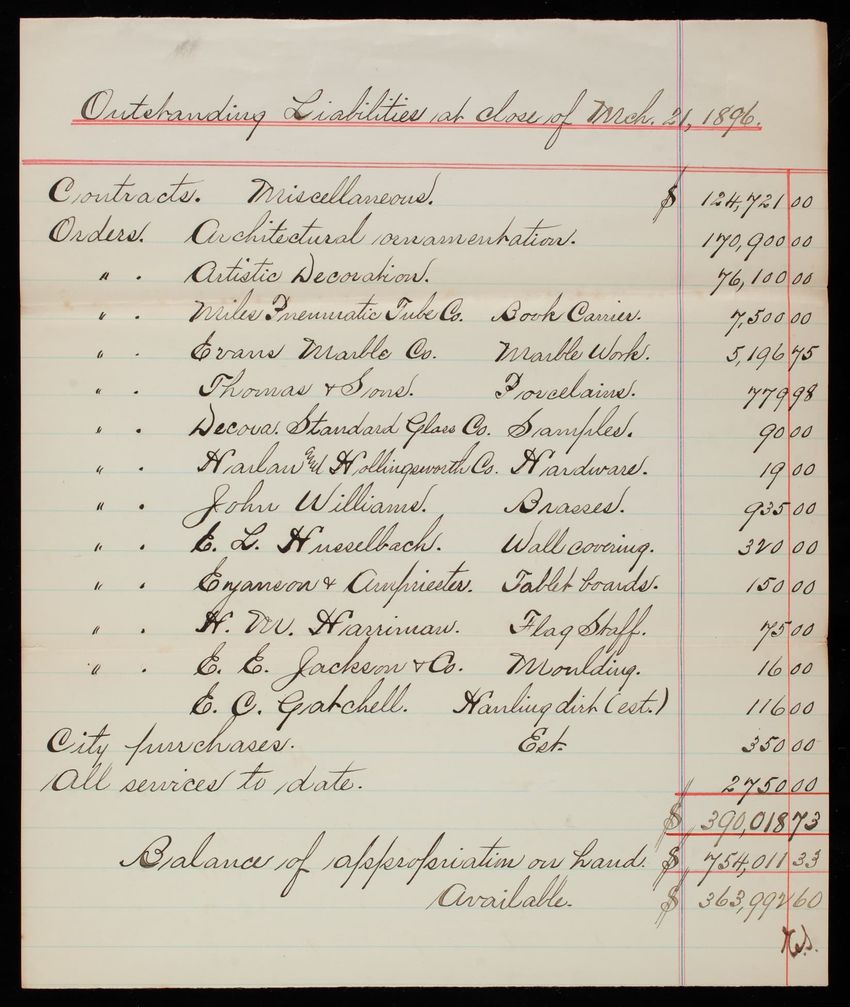 Outstanding Liabilities at close of Mch. 21, 1896.
Contracts. Miscellaneous. $ 124,721 00
Orders. Architectural ornamentation. 170,900 00
" . Artistic Decoration. 76,100 00
" . Miles Pneumatic Tube Co. Book Carrier. 7,500 00
" . Evans Marble Co. Marble Work. 5,196 75
" . Thomas & Sons. Porcelains. 779 98
" . Decora. Standard Glass Co. Samples. 90 00
" . Harlan and Hollingsworth Co. Hardware. 19 00
" . John Williams. Brasses. 935 00
" . E. L. Husselbach. Wall covering. 320 00
" . Eyanson & Armpriester. Tablet boards. 150 00
" . H. M. Harriman. Flag Staff. 75 00
" . E. E. Jackson & Co. Moulding. 16 00
E. C. Gatchell. Hauling dirt (est.) 116 00
City purchases. Est. 350 00
All services to date. 2750 00
$ 390,018 73
Balance of appropriation on hand. $ 754,011 33
Available. $ 363,992 60